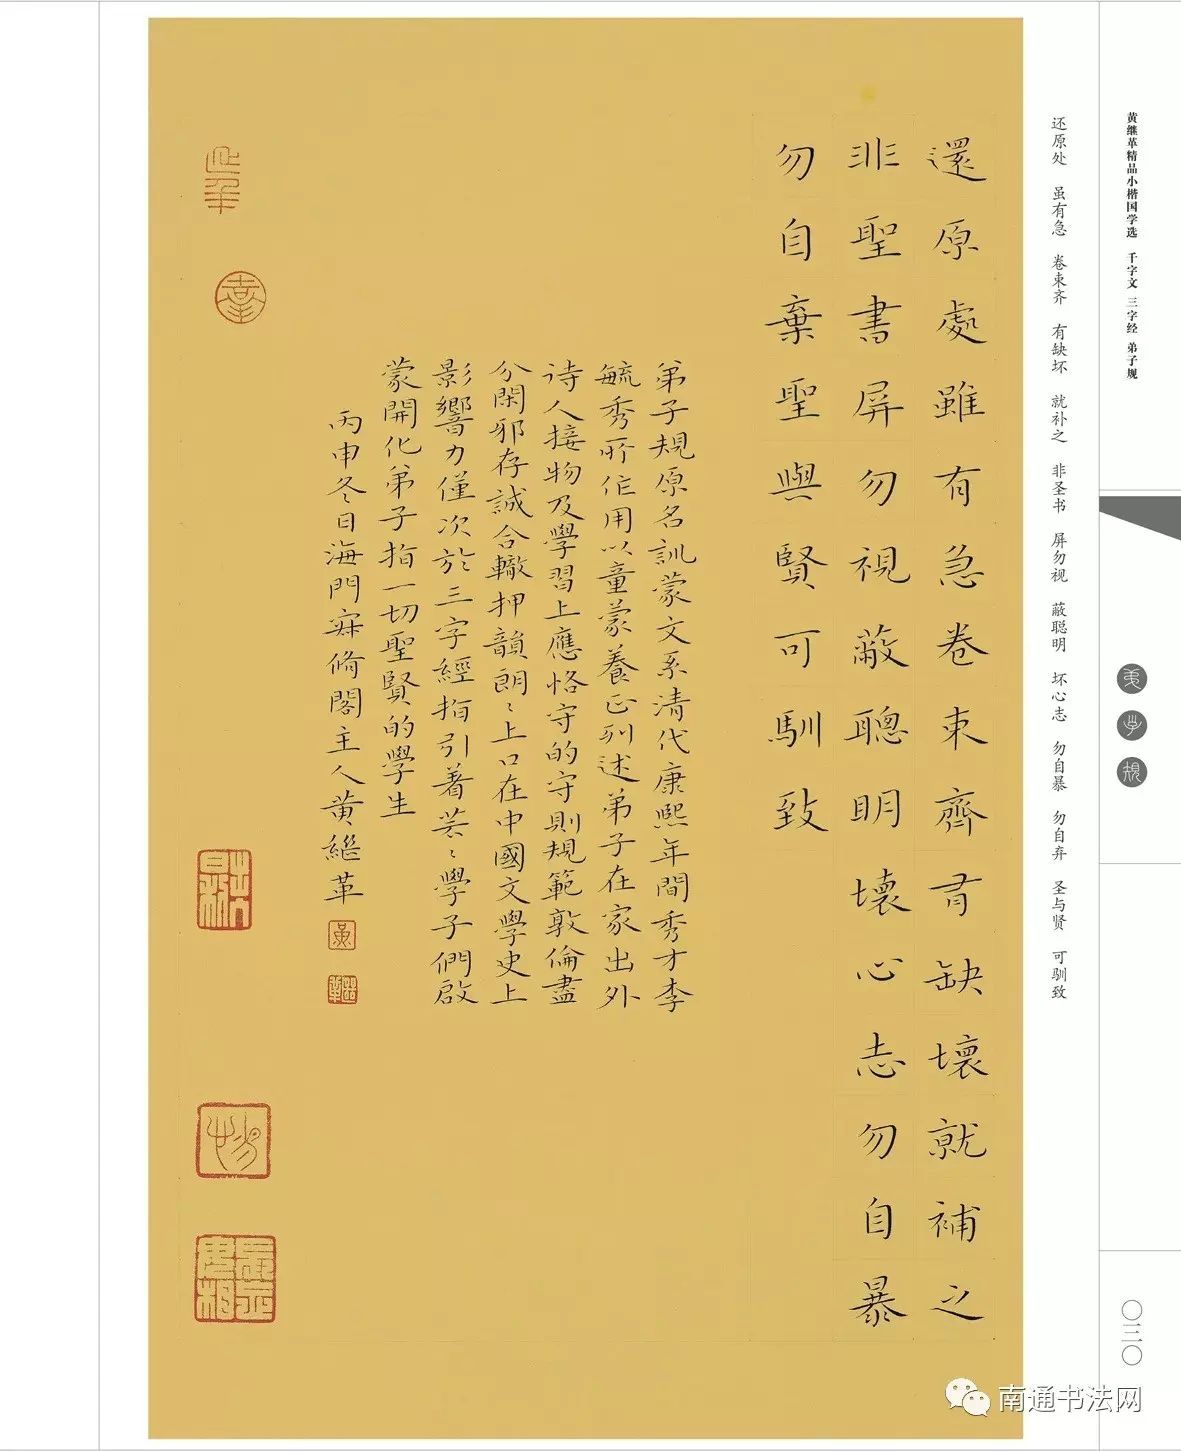 黄继革精品小楷国学选 千字文 三字经 弟子规
弟子规
〇三〇
还原处 虽有急 卷束齐 有缺坏 就补之 非圣书 屏勿视 蔽聪明 坏心志 勿自暴 勿自弃 圣与贤 可驯致
還原處雖有急卷束齊有缺壞就補之
非聖書屏勿視蔽聰明壞心志勿自暴
勿自棄聖與賢可馴致
弟子規原名訓蒙文系清代康熙年間秀才李
毓秀所作用以童蒙養正列述弟子在家出外
诗人接物及學習上應恪守的守則規範敦倫盡
分閑邪存誠合轍押韻朗〻上口在中國文學史上
影響力僅次於三字經指引着芸〻學子們啟
蒙開化弟子指一切聖賢的學生
丙申冬日海門寐脩閣主人黄繼革
黃
南通书法网